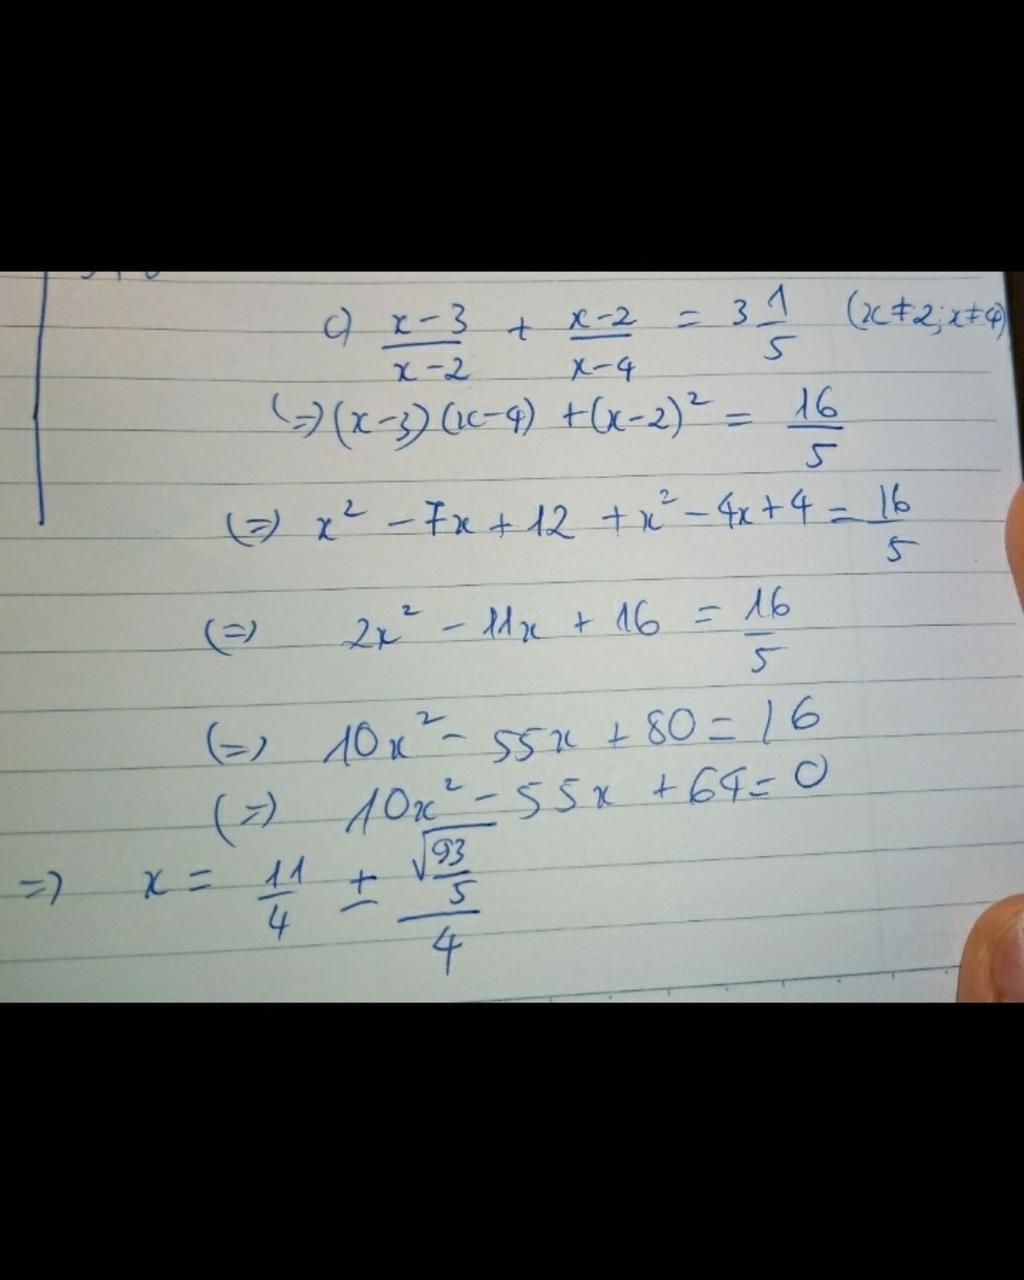 c) \frac{x-3}{x-2} + \frac{x-2}{x-4} = 3\frac{1}{5} (x≠2; x≠4)
(=) (x-3)(x-4) + (x-2)² = \frac{16}{5}
(=) x² - 7x + 12 + x² - 4x + 4 = \frac{16}{5}
(=) 2x² - 11x + 16 = \frac{16}{5}
(=) 10x² - 55x + 80 = 16
(=) 10x² - 55x + 64 = 0
=) x = \frac{11}{4} ± \frac{\sqrt{\frac{93}{5}}}{4}